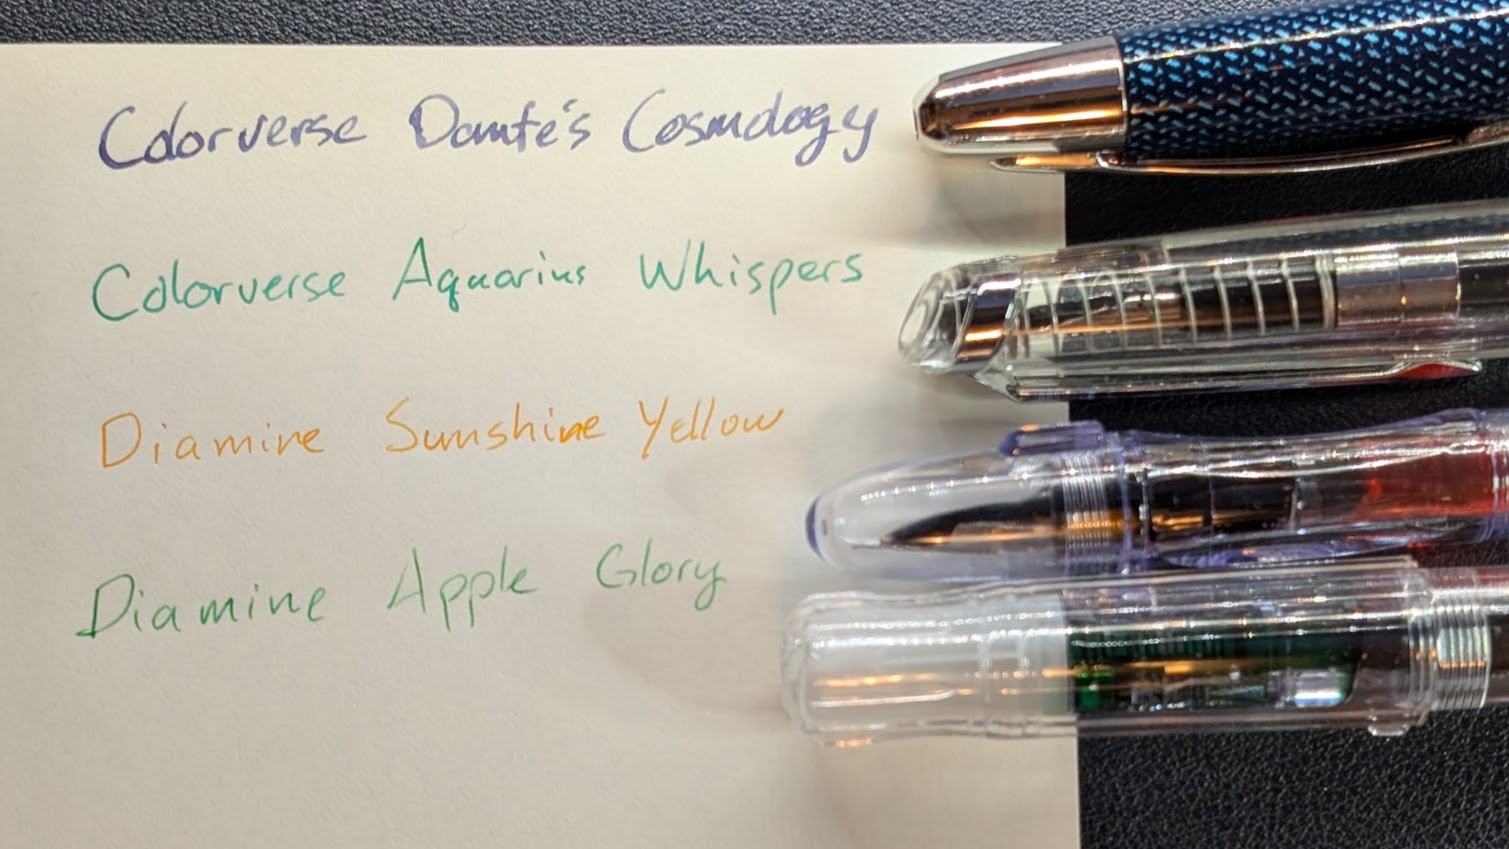 Colorverse Dante's Cosmology
Colorverse Aquarius Whispers
Diamine Sunshine Yellow
Diamine Apple Glory